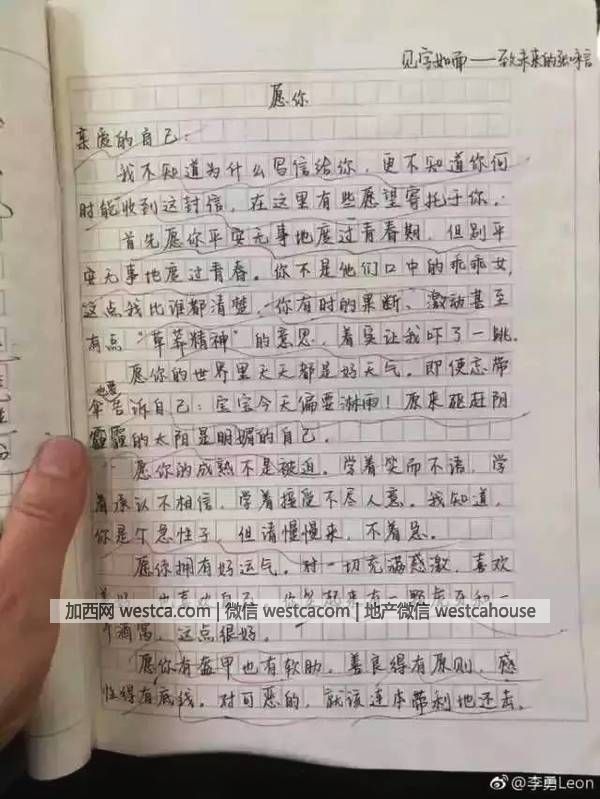 见字如面——致未来的张咔信
愿你
亲爱的自己:
我不知道为什么写信给你,更不知道你何
时能收到这封信,在这里有些愿望寄托于你.:
首先愿你平安无事地度过青春期,但别平
安无事地度过青春。你不是他们口中的乖乖女,
这点我比谁都清楚,你有时的果断、激动甚至
有点“草莽精神”的意思,着实让我吓了一跳.
愿你的世界里天天都是好天气。即使忘带
也要
伞告诉自己:宝宝今天偏要淋雨!原来驱赶阴
霾的太阳是明媚的自己.
愿你的成熟不是被迫。学着笑而不语,学
着承认不相信,学着接受不尽人意。我知道,
你是个急性子,但请慢慢来,不着急.
愿你拥有好运气。对一切充满感激,喜欢
加西网 westca.com | 微信 westcacom | 地产微信 westcahouse
个酒窝,这点很好.
愿你有盔甲也有软肋,善良得有原则,感
性得有底线。对可恶的,就该连本带利地还去.
@李勇Leon